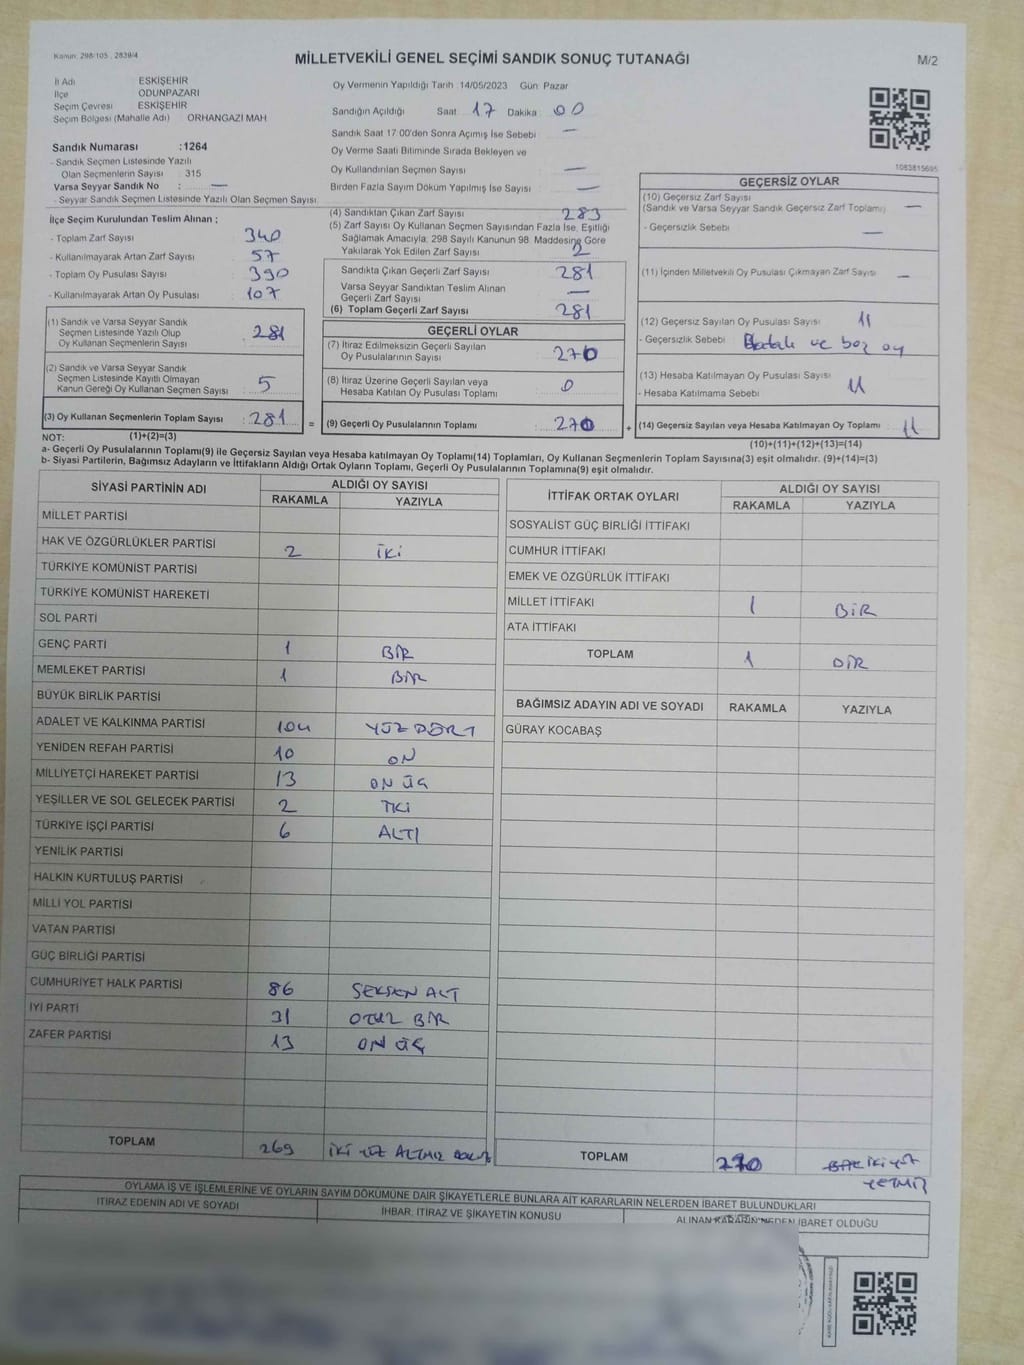 Kanun: 298/105 , 2839/4
MİLLETVEKİLİ GENEL SEÇİMİ SANDIK SONUÇ TUTANAĞI
M/2
İl Adı ESKİŞEHİR
İlçe ODUNPAZARI
Seçim Çevresi ESKİŞEHİR
Seçim Bölgesi (Mahalle Adı) ORHANGAZİ MAH
Sandık Numarası :1264
- Sandık Seçmen Listesinde Yazılı
Olan Seçmenlerin Sayısı : 315
Varsa Seyyar Sandık No : —
- Seyyar Sandık Seçmen Listesinde Yazılı Olan Seçmen Sayısı
Oy Vermenin Yapıldığı Tarih : 14/05/2023 Gün: Pazar
Sandığın Açıldığı Saat 17 Dakika : 00
Sandık Saat 17:00'den Sonra Açımış İse Sebebi : —
Oy Verme Saati Bitiminde Sırada Bekleyen ve
Oy Kullandırılan Seçmen Sayısı : —
Birden Fazla Sayım Döküm Yapılmış İse Sayısı : —
1083815695
İlçe Seçim Kurulundan Teslim Alınan ;
- Toplam Zarf Sayısı : 340
- Kullanılmayarak Artan Zarf Sayısı : 57
- Toplam Oy Pusulası Sayısı : 390
- Kullanılmayarak Artan Oy Pusulası : 107
(1) Sandık ve Varsa Seyyar Sandık
Seçmen Listesinde Yazılı Olup
Oy Kullanan Seçmenlerin Sayısı : 281
(2) Sandık ve Varsa Seyyar Sandık
Seçmen Listesinde Kayıtlı Olmayan
Kanun Gereği Oy Kullanan Seçmen Sayısı : 5
(3) Oy Kullanan Seçmenlerin Toplam Sayısı : 281 =
(1)+(2)=(3)
(4) Sandıktan Çıkan Zarf Sayısı : 283
(5) Zarf Sayısı Oy Kullanan Seçmen Sayısından Fazla İse, Eşitliği
Sağlamak Amacıyla; 298 Sayılı Kanunun 98. Maddesine Göre
Yakılarak Yok Edilen Zarf Sayısı : 2
Sandıkta Çıkan Geçerli Zarf Sayısı : 281
Varsa Seyyar Sandıktan Teslim Alınan
Geçerli Zarf Sayısı : —
(6) Toplam Geçerli Zarf Sayısı : 281
GEÇERLİ OYLAR
(7) İtiraz Edilmeksizin Geçerli Sayılan
Oy Pusulalarının Sayısı : 270
(8) İtiraz Üzerine Geçerli Sayılan veya
Hesaba Katılan Oy Pusulası Toplamı : 0
(9) Geçerli Oy Pusulalarının Toplamı : 270 +
GEÇERSİZ OYLAR
(10) Geçersiz Zarf Sayısı
(Sandık ve Varsa Seyyar Sandık Geçersiz Zarf Toplamı) : —
- Geçersizlik Sebebi : —
(11) İçinden Milletvekili Oy Pusulası Çıkmayan Zarf Sayısı : —
(12) Geçersiz Sayılan Oy Pusulası Sayısı : 11
- Geçersizlik Sebebi : ve boş oy
(13) Hesaba Katılmayan Oy Pusulası Sayısı : 11
- Hesaba Katılmama Sebebi :
(14) Geçersiz Sayılan veya Hesaba Katılmayan Oy Toplamı : 11
(10)+(11)+(12)+(13)=(14)
NOT:
a- Geçerli Oy Pusulalarının Toplamı(9) ile Geçersiz Sayılan veya Hesaba Katılmayan Oy Toplamı(14) Toplamları, Oy Kullanan Seçmenlerin Toplam Sayısına(3) eşit olmalıdır. (9)+(14)=(3)
b- Siyasi Partilerin, Bağımsız Adayların ve İttifakların Aldığı Ortak Oyların Toplamı, Geçerli Oy Pusulalarının Toplamına(9) eşit olmalıdır.
SİYASİ PARTİNİN ADI ALDIĞI OY SAYISI
RAKAMLA YAZIYLA
MİLLET PARTİSİ
HAK VE ÖZGÜRLÜKLER PARTİSİ 2 İKİ
TÜRKİYE KOMÜNİST PARTİSİ
TÜRKİYE KOMÜNİST HAREKETİ
SOL PARTİ
GENÇ PARTİ 1 BİR
MEMLEKET PARTİSİ 1 BİR
BÜYÜK BİRLİK PARTİSİ
ADALET VE KALKINMA PARTİSİ 104 YÜZ DÖRT
YENİDEN REFAH PARTİSİ 10 ON
MİLLİYETÇİ HAREKET PARTİSİ 13 ON ÜÇ
YEŞİLLER VE SOL GELECEK PARTİSİ 2 İKİ
TÜRKİYE İŞÇİ PARTİSİ 6 ALTI
YENİLİK PARTİSİ
HALKIN KURTULUŞ PARTİSİ
MİLLİ YOL PARTİSİ
VATAN PARTİSİ
GÜÇ BİRLİĞİ PARTİSİ
CUMHURİYET HALK PARTİSİ 86 SEKSEN ALTI
İYİ PARTİ 31 OTUZ BİR
ZAFER PARTİSİ 13 ON ÜÇ
TOPLAM 269 İKİ YÜZ ALTMIŞ DOKUZ
İTTİFAK ORTAK OYLARI ALDIĞI OY SAYISI
RAKAMLA YAZIYLA
SOSYALİST GÜÇ BİRLİĞİ İTTİFAKI
CUMHUR İTTİFAKI
EMEK VE ÖZGÜRLÜK İTTİFAKI
MİLLET İTTİFAKI 1 BİR
ATA İTTİFAKI
TOPLAM 1 BİR
BAĞIMSIZ ADAYIN ADI VE SOYADI RAKAMLA YAZIYLA
GÜRAY KOCABAŞ
TOPLAM 270 BİR İKİ YÜZ
YETMİŞ
OYLAMA İŞ VE İŞLEMLERİNE VE OYLARIN SAYIM DÖKÜMÜNE DAİR ŞİKAYETLERLE BUNLARA AİT KARARLARIN NELERDEN İBARET BULUNDUKLARI
İTİRAZ EDENİN ADI VE SOYADI İHBAR, İTİRAZ VE ŞİKAYETİN KONUSU ALINAN KARARIN NEDEN İBARET OLDUĞU